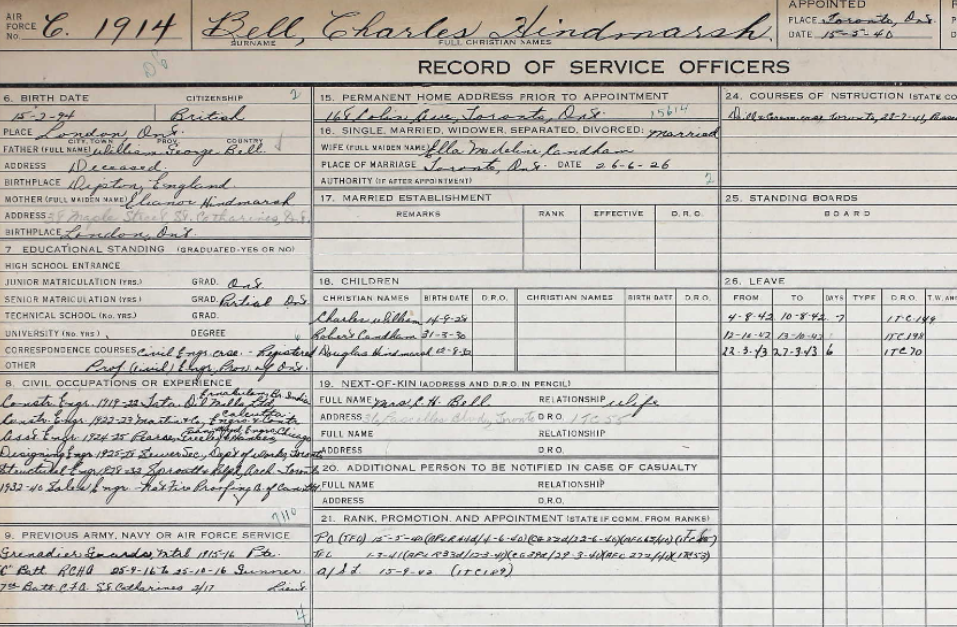 AIR FORCE No. C. 1914
Bell, Charles Hindmarsh.
SURNAME FULL CHRISTIAN NAMES
APPOINTED
PLACE Toronto, Ont.
DATE 15-5-40
RECORD OF SERVICE OFFICERS
6. BIRTH DATE CITIZENSHIP 2
15-2-94 British
PLACE London, Ont.
CITY, TOWN PROV. COUNTRY
FATHER (FULL NAME) William George Bell.
ADDRESS Deceased.
BIRTHPLACE Dipton, England.
MOTHER (FULL MAIDEN NAME) Eleanor Hindmarsh
ADDRESS Maple Street St. Catharines, Ont.
BIRTHPLACE London, Ont.
7 EDUCATIONAL STANDING (GRADUATED-YES OR NO)
HIGH SCHOOL ENTRANCE
JUNIOR MATRICULATION (YRS.) GRAD. Ont
SENIOR MATRICULATION (YRS.) GRAD. Partial Ont
TECHNICAL SCHOOL (YRS.) GRAD.
UNIVERSITY (NO. YRS.) DEGREE
CORRESPONDENCE COURSES Civil Engr. crse. - Registered
OTHER Prof. (Civil) Engr. Prov. of Ont.
8. CIVIL OCCUPATIONS OR EXPERIENCE
Constr. Engr. 1919-22 Tata Oil Mills Ltd, India
Constr. Engr. 1922-23 Martin & Co, Engrs & Contr Calcutta
Asst Engr. 1924-25 Pearse, Greeley & Hansen, Engrs. Chicago
Designing Engr. 1925-28 Sewer Sec., Dept of Works, Toronto
Structural Engr. Sproatt & Rolph, Arch. Toronto
1932-40 Sales Engr. Fire Proofing
7110
9. PREVIOUS ARMY, NAVY OR AIR FORCE SERVICE
Grenadier Guards, Mtrl 1915-16 Pte.
"C" Batt. RCHA 25-9-16 to 25-10-16 Gunner
7th Batt C.F.A. St. Catharines 2/17 Lieut
4
15. PERMANENT HOME ADDRESS PRIOR TO APPOINTMENT
Ave, Toronto, Ont. 15614
16. SINGLE, MARRIED, WIDOWER, SEPARATED, DIVORCED: Married
WIFE (FULL MAIDEN NAME) Ella Madeline Candham
PLACE OF MARRIAGE Toronto, Ont. DATE 26-6-26
AUTHORITY (IF AFTER APPOINTMENT) 2
17. MARRIED ESTABLISHMENT
REMARKS RANK EFFECTIVE D.R.O.
18. CHILDREN
CHRISTIAN NAMES BIRTH DATE D.R.O. CHRISTIAN NAMES BIRTH DATE D.R.O.
Charles William 14-9-28
Robert Candham 31-3-30
Douglas Hindmarsh
19. NEXT-OF-KIN (ADDRESS AND D.R.O. IN PENCIL)
FULL NAME Mrs C. H. Bell. RELATIONSHIP Wife
ADDRESS Blvd, Toronto D.R.O. ITC 55
FULL NAME RELATIONSHIP
ADDRESS D.R.O.
20. ADDITIONAL PERSON TO BE NOTIFIED IN CASE OF CASUALTY
FULL NAME RELATIONSHIP
ADDRESS D.R.O.
21. RANK, PROMOTION, AND APPOINTMENT (STATE IF COMM. FROM RANKS)
P/O (TFO) 15-5-40
T.F.L. 1-3-41
A/S.L. 15-9-42 (ITC189)
24. COURSES OF INSTRUCTION (STATE CO
Toronto,
25. STANDING BOARDS
BOARD
26. LEAVE
FROM TO DAYS TYPE D.R.O. T.W. AND
4-8-42 10-8-42 7 ITC149
12-10-42 13-10-42 ITC198
22-3-43 27-3-43 6 ITC70